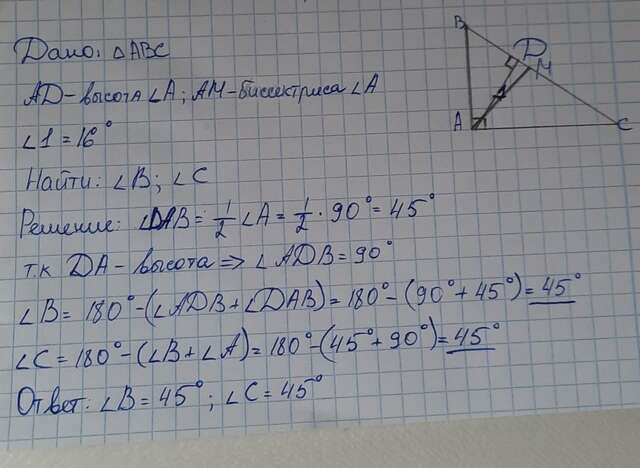 Дано: △ABC
AD-высота ∠A; AM-биссектриса ∠A
∠1=16°
Найти: ∠B; ∠C
Решение: ∠DAB=1/2 ∠A=1/2·90°=45°
т.к DA-высота ⇒ ∠ADB=90°
∠B=180°-(∠ADB+∠DAB)=180°-(90°+45°)=45°
∠C=180°-(∠B+∠A)=180°-(45°+90°)=45°
Ответ: ∠B=45°; ∠C=45°
B
D
M
1
A
C